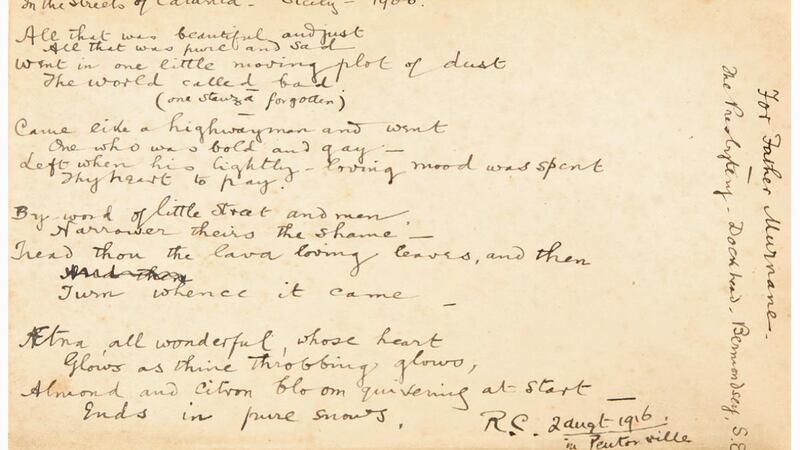 In the Streets of Catania. Sicily - 1900.
All that was beautiful and just
All that was pure and sad
Went in one little moving plot of dust
The world called bad.
(one stanza forgotten)
Came like a highwayman and went
One who was bold and gay -
Left when his lightly-loving mood was spent
Thy heart to pay.
By-word of little street and men,
Narrower theirs the shame -
Tread thou the lava loving leaves, and then
And then
Turn whence it came -
Ætna, all wonderful, whose heart
Glows as thine throbbing glows,
Almond and citron bloom quivering at start -
Ends in pure snows.
R.C. 2 augt 1916.
in Pentonville
For Father Murnane.
The Presbytery - Dockhead - Bermondsey, S.E